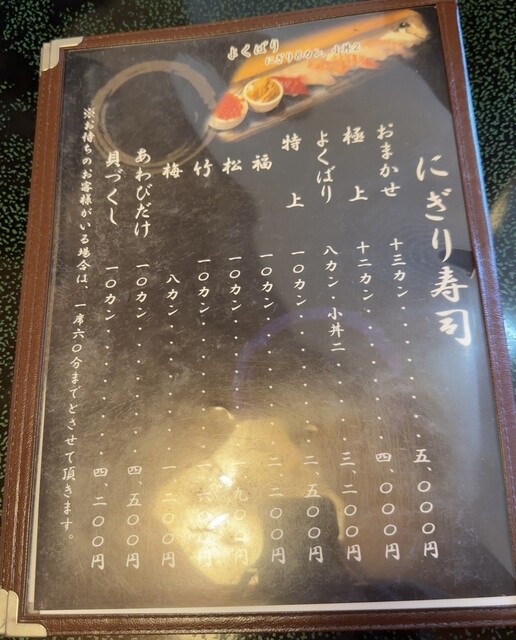 よくばり
にぎり8カン、小丼2
にぎり寿司
おまかせ 十三カン・・・・・・五、〇〇〇円
極上 十二カン・・・・・・四、〇〇〇円
よくばり 八カン・小丼二・・・三、二〇〇円
特上 一〇カン・・・・・・二、五〇〇円
福 一〇カン・・・・・・二、二〇〇円
松 一〇カン・・・・・・一、九〇〇円
竹 一〇カン・・・・・・一、六〇〇円
梅 八カン・・・・・・一、二〇〇円
あわびだけ 一〇カン・・・・・・四、五〇〇円
貝づくし 一〇カン・・・・・・四、二〇〇円
※お待ちのお客様がいる場合は、一席六〇分までとさせて頂きます。